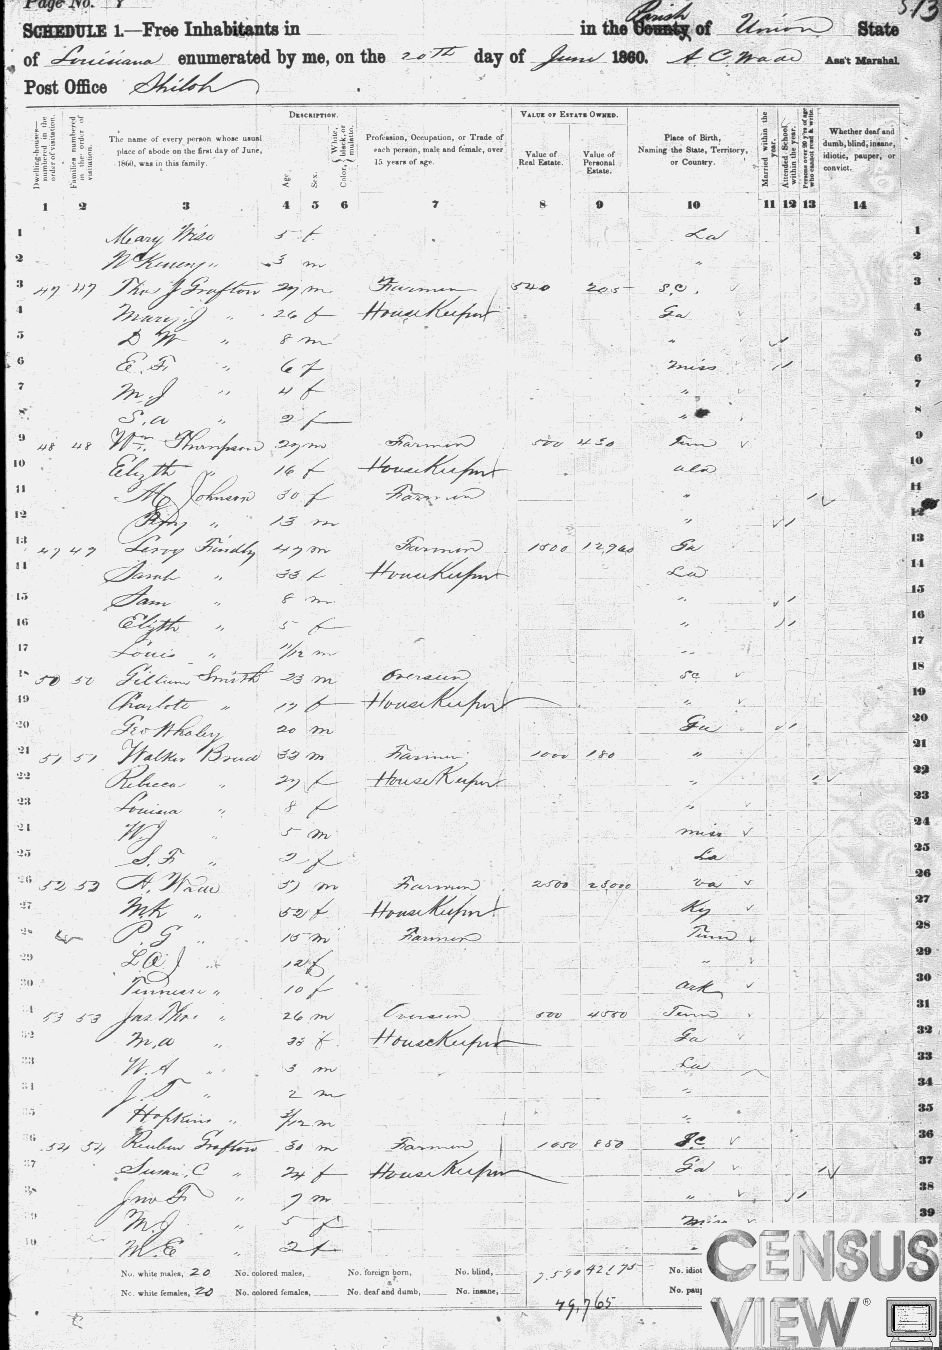 Page No. 8
513
SCHEDULE 1.—Free Inhabitants in in the County Parish of Union State
of Louisiana enumerated by me, on the 20th day of June 1860. A C Wade Ass't Marshal.
Post Office Shiloh
Dwelling-houses—numbered in the order of visitation.
Families numbered in the order of visitation.
The name of every person whose usual place of abode on the first day of June, 1860, was in this family.
DESCRIPTION.
Age.
Sex.
Color, White, black, or mulatto.
Profession, Occupation, or Trade of each person, male and female, over 15 years of age.
VALUE OF ESTATE OWNED.
Value of Real Estate.
Value of Personal Estate.
Place of Birth, Naming the State, Territory, or Country.
Married within the year.
Attended School within the year.
Persons over 20 y'rs of age who cannot read & write.
Whether deaf and dumb, blind, insane, idiotic, pauper, or convict.
1 2 3 4 5 6 7 8 9 10 11 12 13 14
1 Mary Wise 5 f La 1
2 McKinney " 3 m " 2
3 47 47 Thos J Grafton 29 m Farmer 540 205 S.C. 3
4 Mary J " 26 f HouseKeeper Ga 4
5 D W " 8 m " / 5
6 E. F. " 6 f Miss / 6
7 M. J " 4 f " 7
8 S. A " 2 f " 8
9 48 48 Wm. Thompson 29 m Farmer 500 430 Tenn 9
10 Elizth " 16 f HouseKeeper Ala 10
11 M Johnson 30 f Farmer " / 11
12 " 13 m " / 12
13 49 49 Leroy Findly 49 m Farmer 1500 12,960 Ga 13
14 Sarah " 33 f HouseKeeper La 14
15 Sam " 8 m " / 15
16 Elizth " 5 f " / 16
17 Louis " 11/12 m " 17
18 50 50 Smith 23 m Overseer SC 18
19 Charlote " 19 f HouseKeeper " 19
20 Geo Whaley 20 m Ga / 20
21 51 51 Walker 33 m Farmer 1000 180 " 21
22 Rebecca " 29 f HouseKeeper " / 22
23 Louisa " 8 f " 23
24 W. J " 5 m Miss 24
25 S. F " 2 f La 25
26 52 52 A. Wade 51 m Farmer 2500 25000 Va 26
27 M K " 52 f HouseKeeper Ky 27
28 P. G " 15 m Farmer Tenn 28
29 L J " 12 f " 29
30 Tennessee " 10 f Ark 30
31 53 53 Jas. Thos " 26 m Overseer 500 4500 Tenn 31
32 M. A " 33 f HouseKeeper Ga 32
33 W. A " 3 m La 33
34 J. T " 2 m " 34
35 Hopkins " 3/12 m " 35
36 54 54 Reuben Grafton 30 m Farmer 1050 850 S.C. 36
37 Susan C " 24 f HouseKeeper Ga / 37
38 Jno F. " 7 m " / 38
39 M. J " 5 f Miss 39
40 M. E " 2 f "
No. white males, 20 No. colored males, No. foreign born, No. blind, 7,590 42175 No. idiot
No. white females, 20 No. colored females, No. deaf and dumb, No. insane, No. paup
49,765
CENSUS
VIEW®